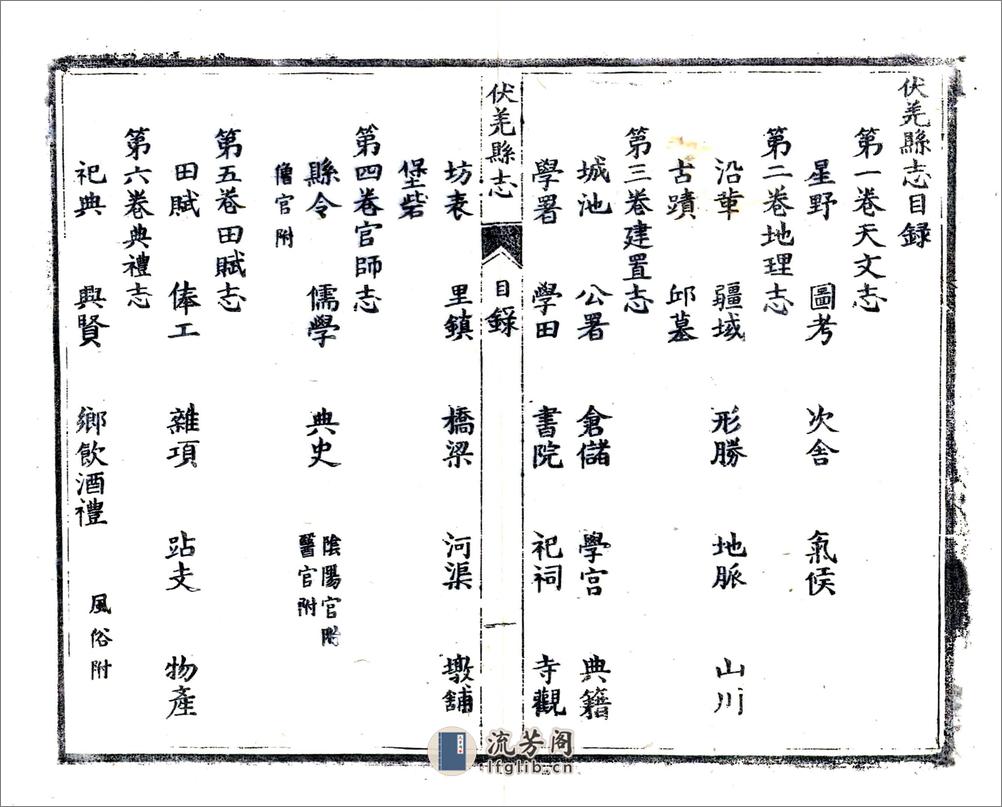 伏羌縣志目錄
第一卷天文志
星野 圖考 次舍 氣候
第二卷地理志
沿革 疆域 形勝 地脈 山川
古蹟 邱墓
第三卷建置志
城池 公署 倉儲 學宮 典籍
學署 學田 書院 祀祠 寺觀
伏羌縣志 目錄 一
坊表 里鎮 橋梁 河渠 墩舖
堡砦
第四卷官師志
縣令 儒學 典史 陰陽官附 醫官附
僧官附
第五卷田賦志
田賦 俸工 雜項 站支 物產
第六卷典禮志
祀典 興賢 鄉飲酒禮 風俗附
流芳阁
lfglib.cn